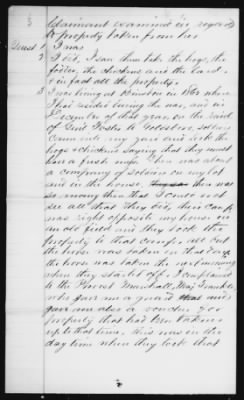 5
Claimant examined in regard
to property taken from her
Quest 1 I was
2 I did, I saw them take the hogs, the
fodder, the chickens and the lard
& in fact all the property.
3 I was living at Kinston in 1862 where
I had resided during the war, and in
December of that year on the raid
of Genl Foster to Goldsboro, soldiers
came into my yard and with the
hogs & chickens saying that they must
have a fresh mess. There was about
a company of soldiers on my lot
and in the house, there was
so many then that I could not
see all that they did, their camp
was right opposite my house in
an old field and they took the
property to that camp, all but
the horse was taken on that day &
the horse was taken the next morning
when they started off. I complained
to the Provost Marshall, Maj Franklin
who gave me a guard and
gave me also a voucher for
property that had been taken
up to that time, this was in the
day time when they took that